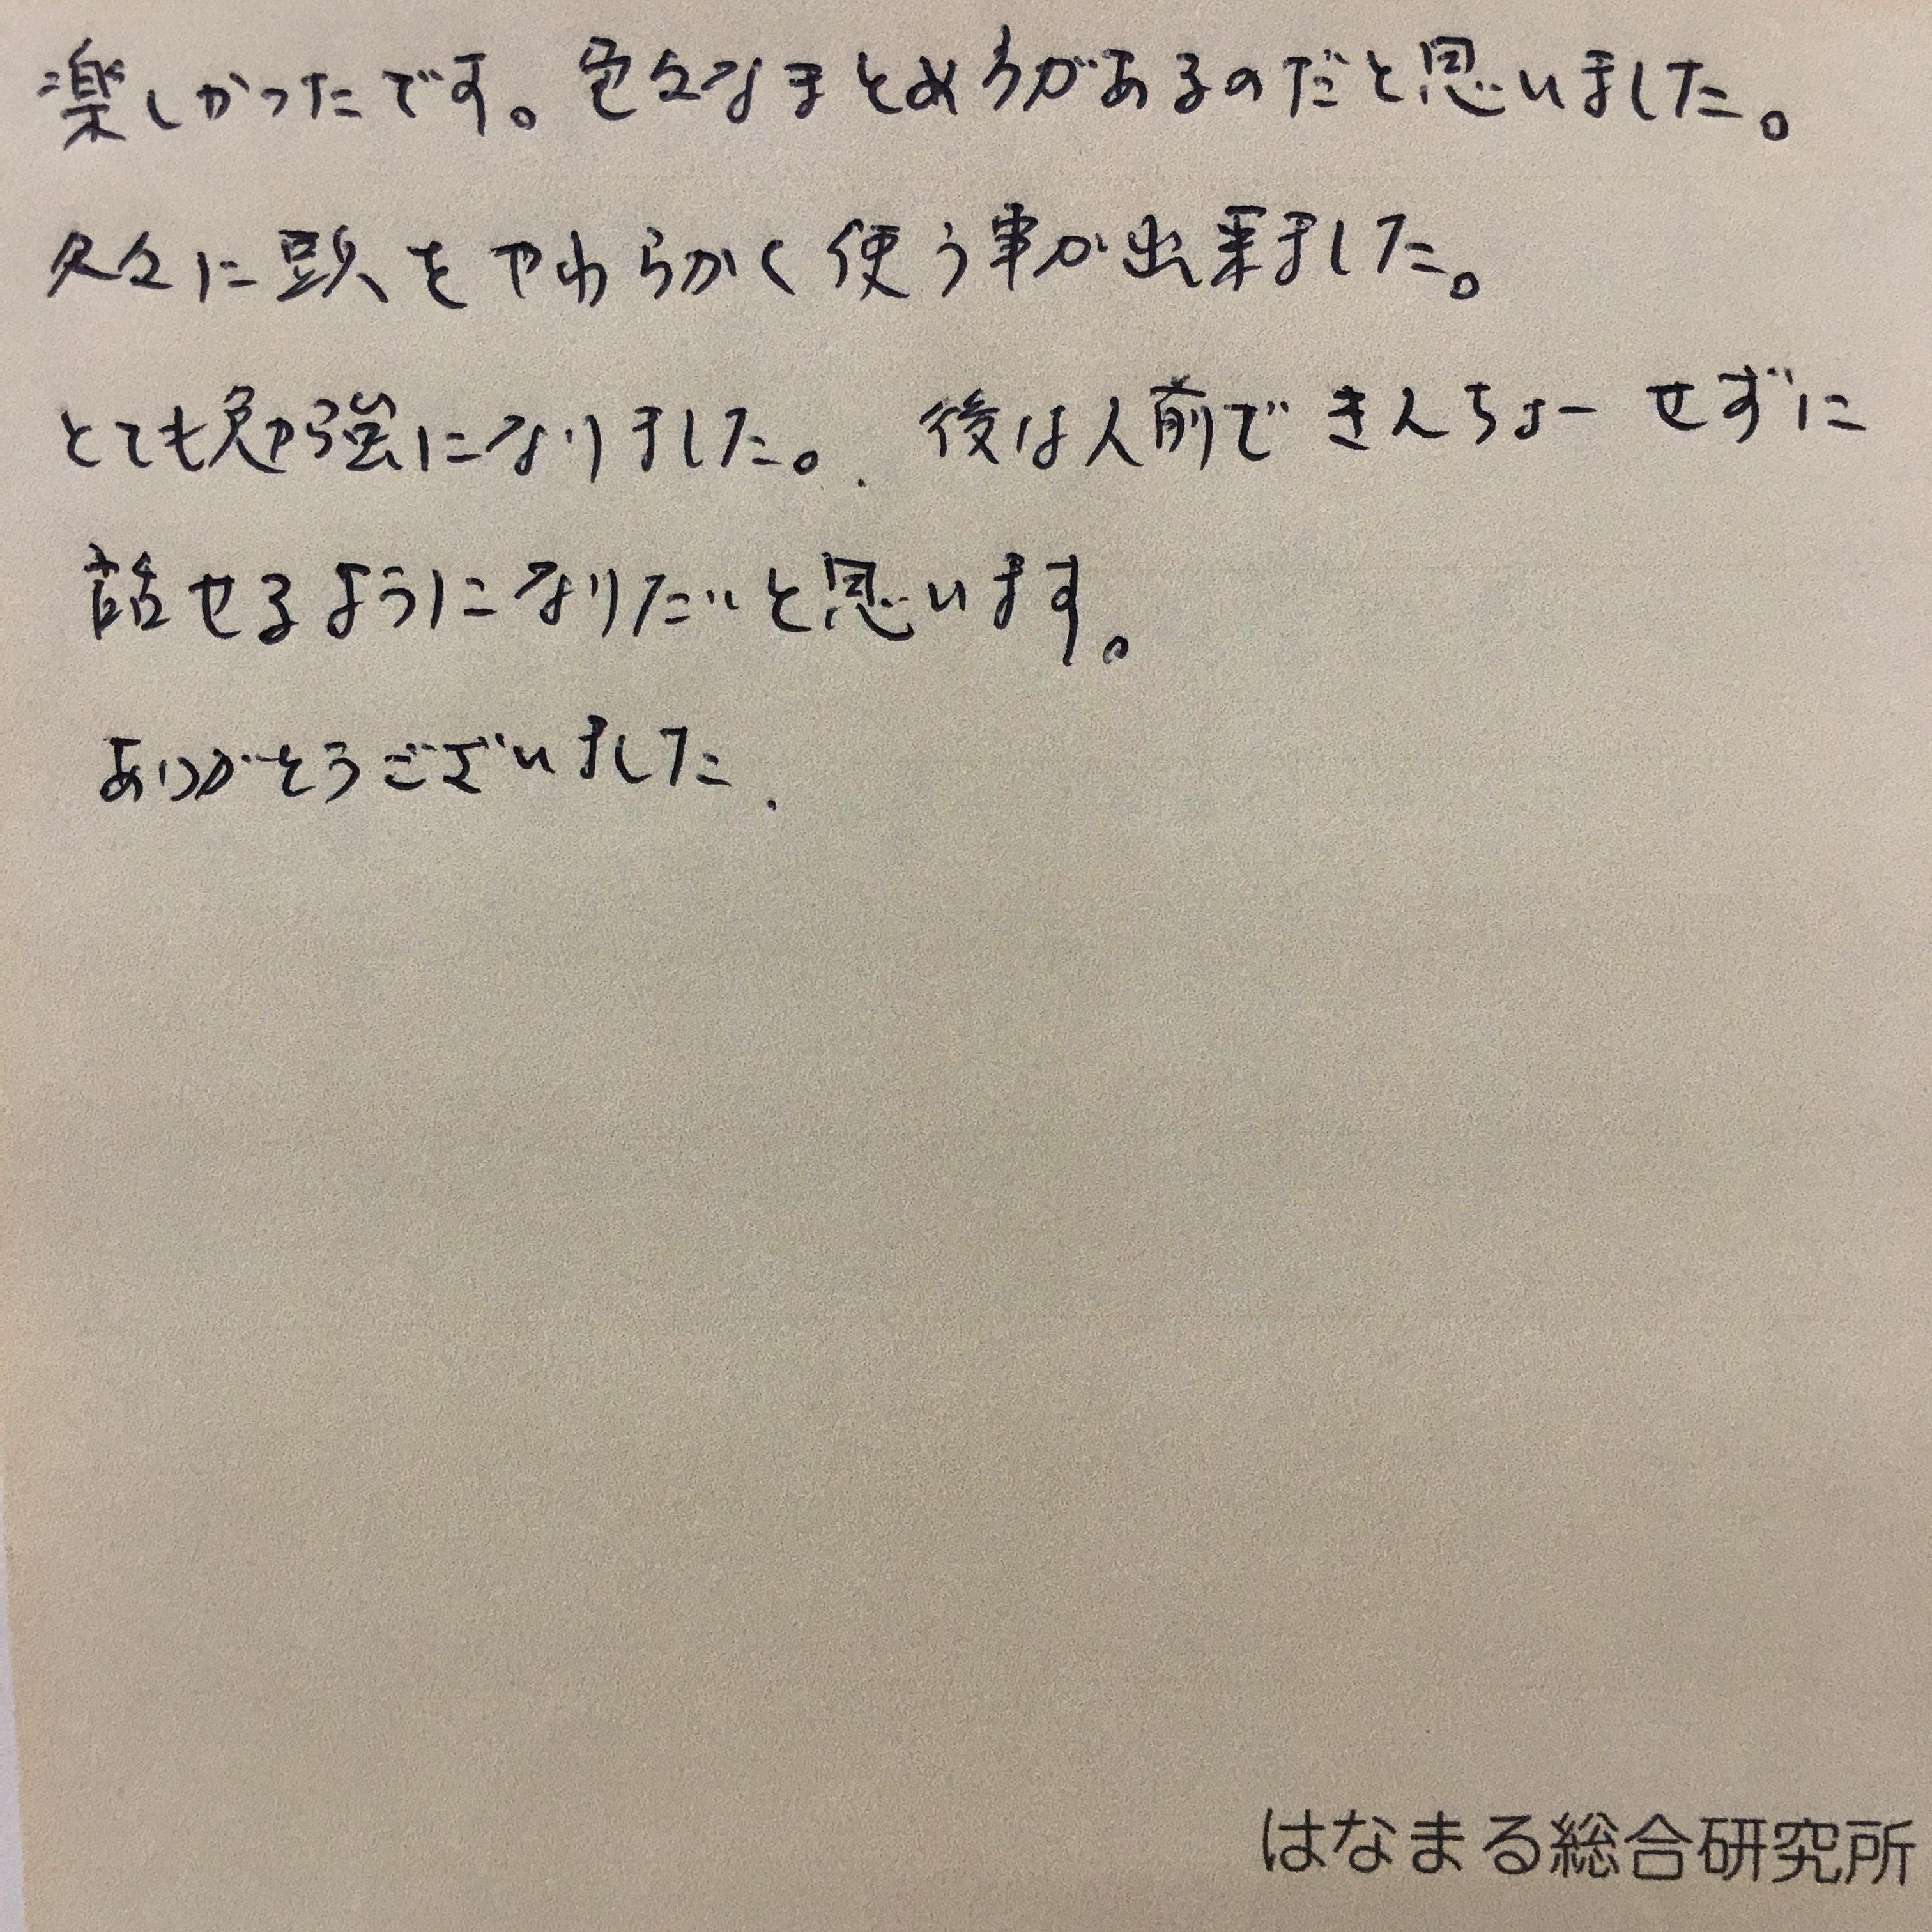 楽しかったです。色々なまとめ方があるのだと思いました。
久々に頭をやわらかく使う事が出来ました。
とても勉強になりました。. 後は人前できんちょーせずに
話せるようになりたいと思います。
ありがとうございました.
はなまる総合研究所